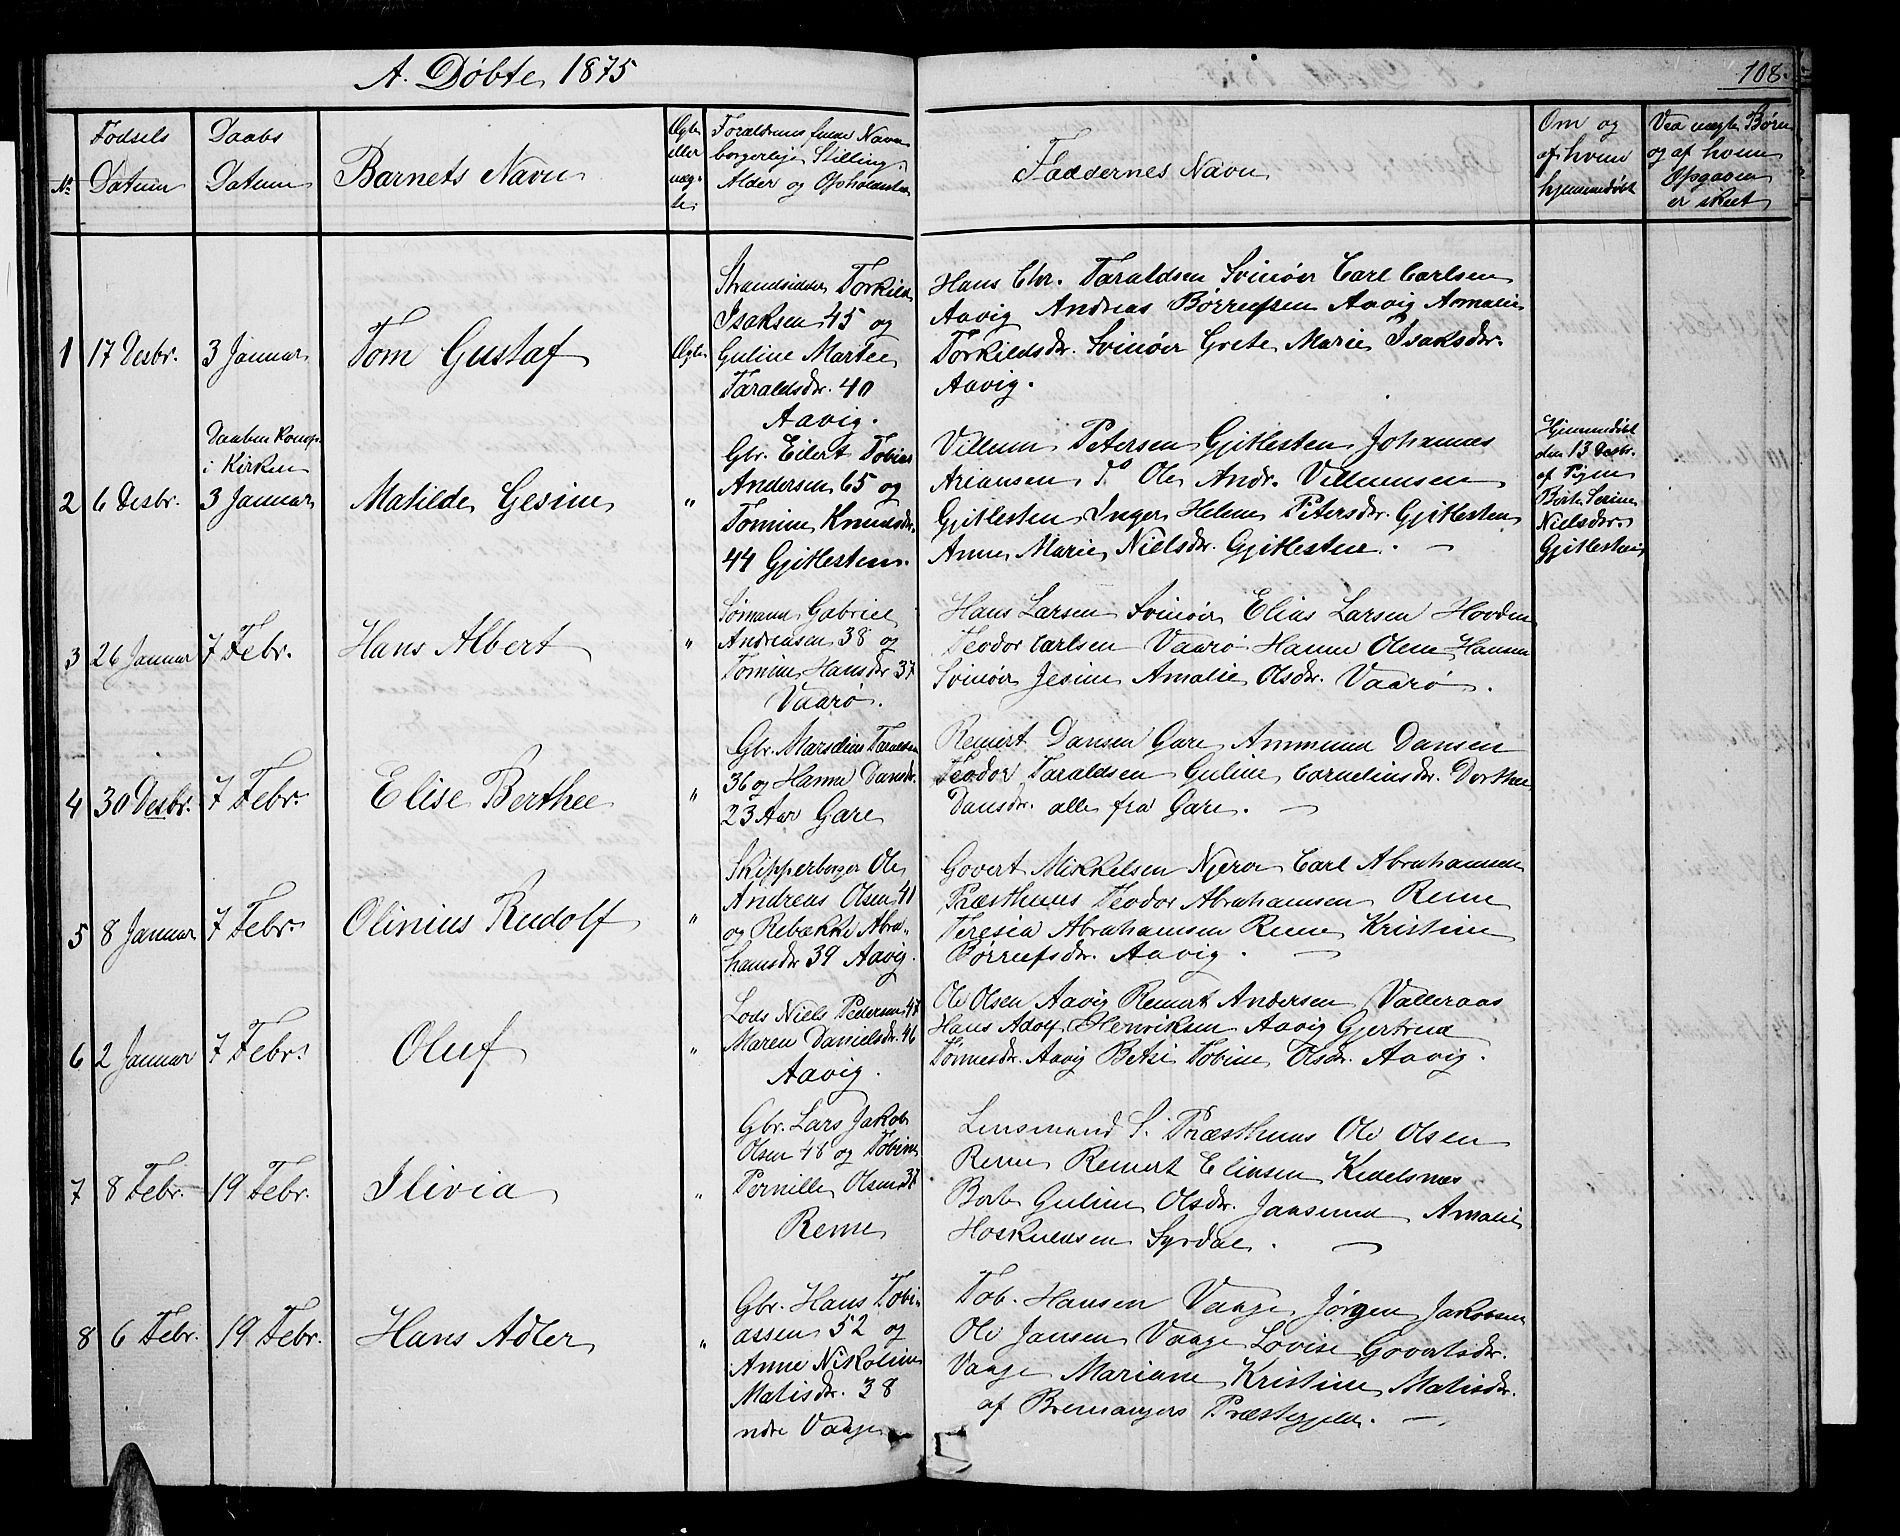 A. Døbte 1875
108.
No
Fødsels Datum
Daabs Datum
Barnets Navn
Ægte eller uægte
Forældrenes fulde Navn
borgerlige Stilling
Alder og Opholdssted
Faddernes Navn
Om og af hvem hjemmedøbt
Vea uægte Børn og af hvem Opgaven er skeet
1 17 Desbr. 3 Januar Tom Gustaf Ægte
Strandsidder Torkild
Isaksen 45 og
Guline Martee
Taraldsdr. 40
Aavig.
Hans Chr. Taraldsen Svinøir Carl Carlsen
Aavig Andreas Børrufsen Aavig Amalie
Torkildsdr. Svinøir Grete Marie Isaksdr.
Aavig.
2 6 Desbr.
Daaben Konf. i Kirken
3 Januar Matilde Gesine "
Gbr. Eilert Tobias
Andersen 65 og
Tomine Knudsdr.
44 Gjitlesten.
Villum Petersen Gjitlesten Johannes
Ariansen Do Ole Andr. Villumsen
Gjitlesten Inger Helene Petersdr. Gjitlesten
Anne Marie Nielsdr. Gjitlesten. —
Hjemmedøbt
den 13 Desbr.
af Pigen
Berte Serine
Nielsdr.
Gjitlesten
3 26 Januar 7 Febr. Hans Albert "
Sømann Gabriel
Andreasen 38 og
Tomine Hansdr 37
Vaarø.
Hans Larsen Svinøir Elias Larsen Hovden
Teodor Carlsen Vaarø Hanne Olene Hansen
Svinøir Jesine Amalie Olsdr. Vaarø.
4 30 Desbr. 7 Febr. Elise Berthee "
Gbr. Marselius Taraldsen
36 og Hanne Dansdr.
23 Aar Gare
Reinert Dansen Gare Ammund Dansen
Teodor Taraldsen Guline Corneliusdr. Dorthea
Dansdr. alle fra Gare. —
5 8 Januar 7 Febr. Olinius Rudolf "
Skipperborger Ole
Andreas Olsen 41
og Rebække Abra-
hamsdr 39 Aavig.
Govert Mikkelsen Njeror Carl Abrahamsen
Præsthuus Teodor Abrahamsen Reme
Teresia Abrahamsen Reme Kristine
Børrufsdr. Aavig. —
6 2 Januar 7 Febr. Oluf "
Lods Niels Pedersen 47
Maren Danielsdr. 46
Aavig.
Ole Olsen Aavig Reinert Andersen Valleraas
Hans Adolf Henriksen Aavig Gjertrud
Tønnesdr. Aavig Betsi Tobine Olsdr. Aavig.
7 8 Febr. 19 Febr. Ilivia "
Gbr. Lars Jakob
Olsen 48 og Tobine
Pernille Olsen 37
Reme
Lensmand S. Præsthuus Ole Olsen
Reme Reinert Eliasen Kidelsnæs
Berte Guline Olsdr. Jaasund Amalie
Hoskuldsen Syrdal. —
8 6 Febr. 19 Febr. Hans Adler "
Gbr. Hans Tobi-
assen 52 og
Anne Nikoline
Matisdr. 38
ndre Vaage
Tob. Hansen Vaage Jørgen Jakobsen
Ole Jansen Vaage Lovise Govertsdr.
Vaage Mariane Kristine Matisdr.
af Bremangers Præstegjeld. —